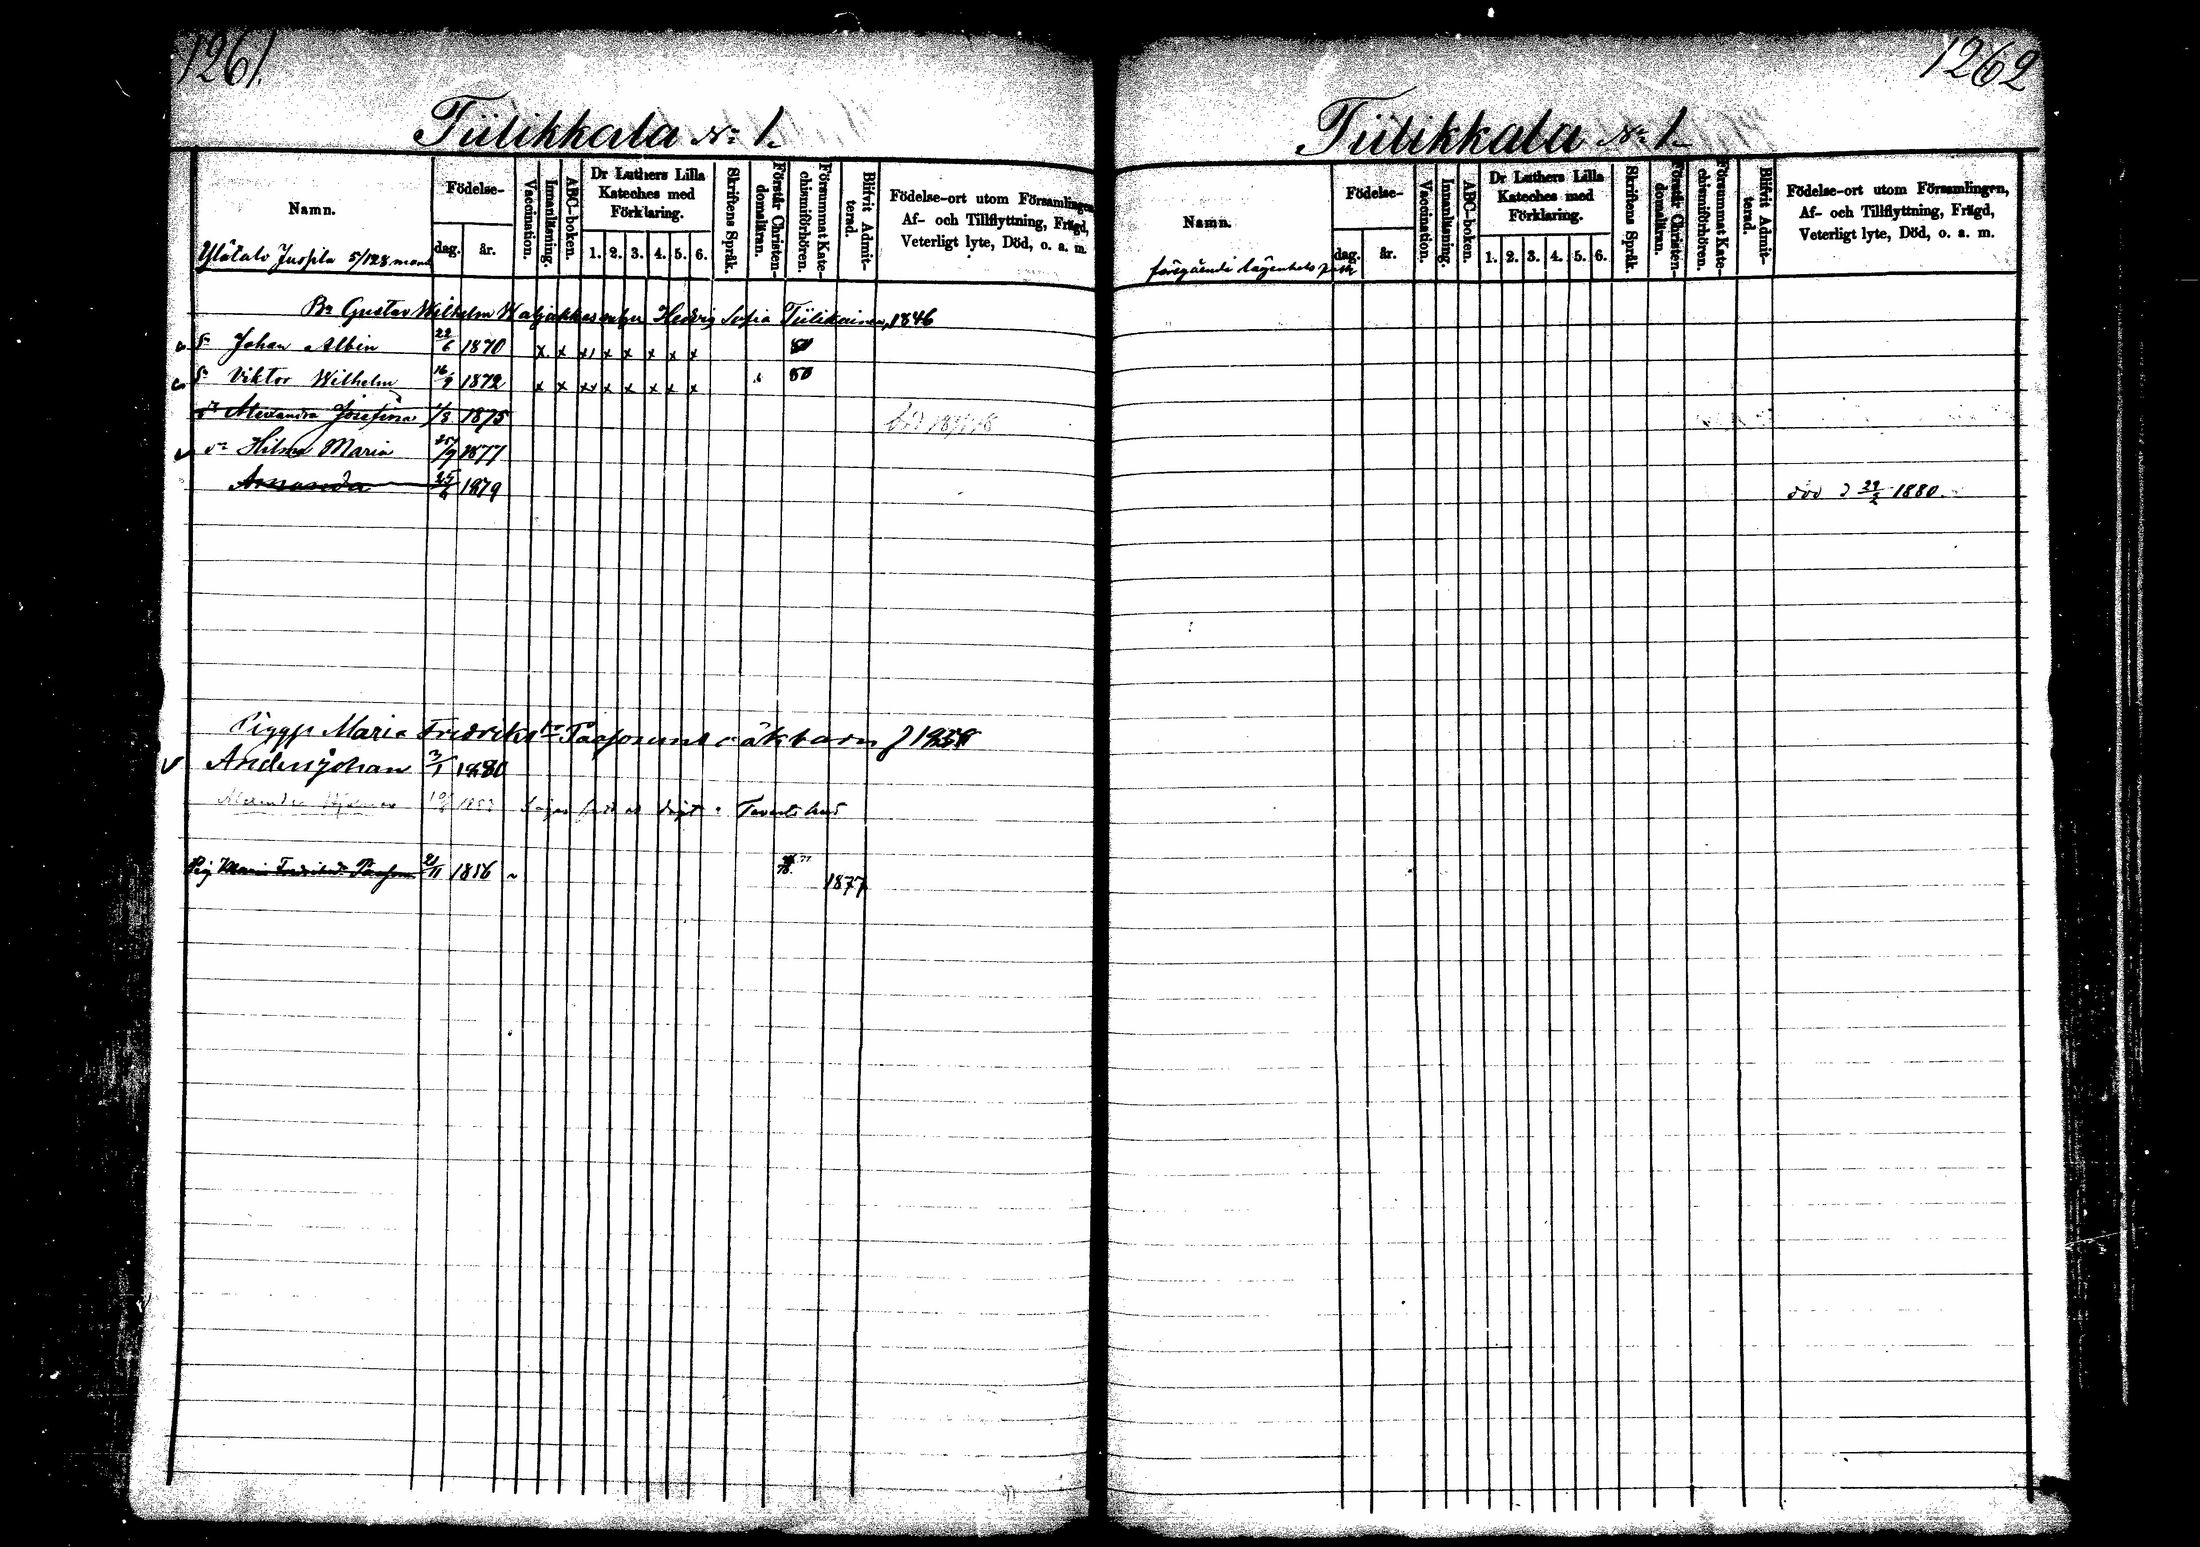 1261
Tiilikkala No 1.
Namn.
Födelse-
dag.
år.
Vaccination.
Innanläsning.
ABC-boken.
Dr Luthers Lilla
Kateches med
Förklaring.
1. 2. 3. 4. 5. 6.
Skriftens Språk.
Förstår Christen-
domsläran.
Försummat Kate-
chismiförhören.
Blifvit Admit-
terad.
Födelse-ort utom Församlingen,
Af- och Tillflyttning, Frägd,
Veterligt lyte, Död, o. a. m.
Ylätalo Juspila 5/128 mant
Bn Gustav Wilhelm Hedvig Sofia Tiilikainen 1846
Sn Johan Albin 22/6 1870 x x x x x x x x 80
Sn Viktor Wilhelm 16/9 1872 x x x x x x x x x 80
dr Alexandra Josefina 1/8 1875
dr Hilma Maria 25/9 1877
Amanda 25/6 1879
Maria Fredriksdr oäkbarn
Anders Johan 3/1 1880
Alexandra 1853
Pig Maria Fredriksdr 21/11 1856 1877
1262
Tiilikkala No 1.
Namn.
Födelse-
dag.
år.
Vaccination.
Innanläsning.
ABC-boken.
Dr Luthers Lilla
Kateches med
Förklaring.
1. 2. 3. 4. 5. 6.
Skriftens Språk.
Förstår Christen-
domsläran.
Försummat Kate-
chismiförhören.
Blifvit Admit-
terad.
Födelse-ort utom Församlingen,
Af- och Tillflyttning, Frägd,
Veterligt lyte, Död, o. a. m.
föregående lägenhets
död d 29/2 1880.